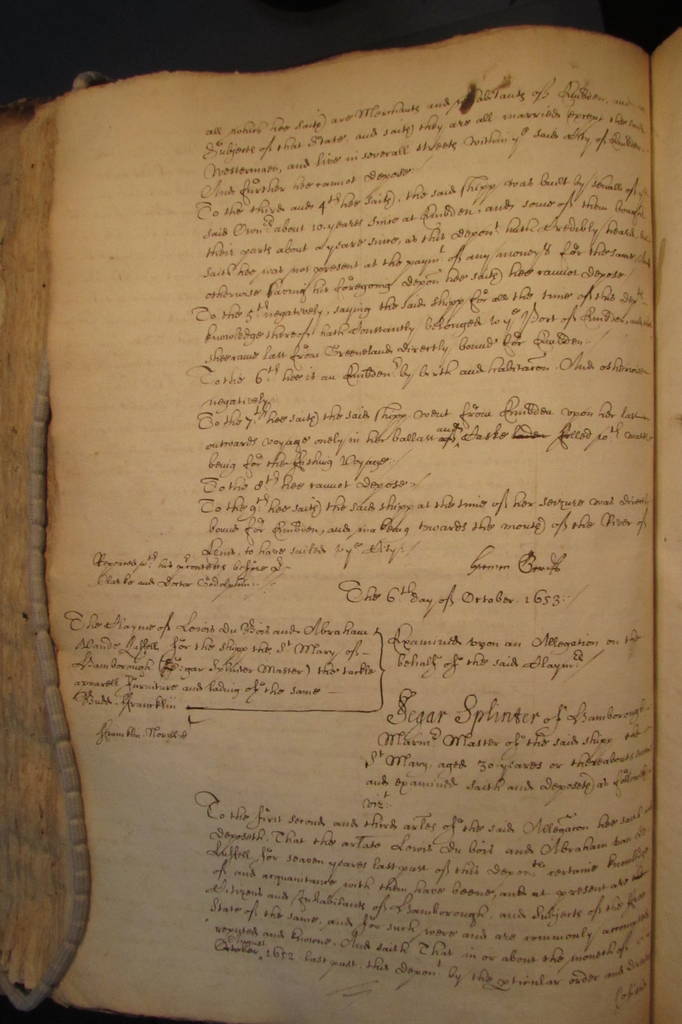 all which hee saith are Merchants and inhabitants of Embden, and
Subjects of that State, and saith they are all married except the said
Westerman, and live in severall streets within ye said City of Embden
And further hee cannot depose
To the third and 4th hee saith, the said shipp was built by severall of ye
said Owners about 10 yeares since at Embden, and some of them bought
their parts about a yeare since, as this depont hath credibly heard,
saith hee was not present at the paymt of any moneys for the same
otherwise saving his foregoing depon hee saith hee cannot depose
To the 5th negatively, saying the said shipp for all the time of this depts
knowledge thereof hath constantly belonged to ye Port of Embden, and
shee came last from Greeneland directly bound for Embden
To the 6th hee is an Embdenr by birth and habitacon. And otherwise
negatively
To the 7th hee saith the said shipp went from Embden upon her last
outwards voyage onely in her ballast and Caske laden filled wth water
being for the fishing voyage
To the 8th hee cannot depose
To the 9th hee saith the said shipp at the time of her seizure was directly
bound for Embden, and was being towards the mouth of the River of
Ems, to have sailed to ye City
Repeated wth his precontest before Dr
Clarke and Doctor Godolphin
The 6th day of October 1653
The Clayme of Lewis Du Bois and Abraham
Vande Lissell for the shipp the St Mary of
Hamborough (Segar Splinter Master) the tackle
apparell furniture and lading of the same
Budd. Francklin
Examined upon an Allegation on the
behalfe of the said Claymrs
Segar Splinter of Hamborough
Marinr Master of the said shipp the
St Mary, aged 30 yeares or thereabouts
and examined saith and deposeth as followeth
vizt
To the first second and third arles of the said Allegacon hee saith and
deposeth That the arlate Lewis Du bois and Abraham van de
Lissell for seaven yeares last past of this deponts certaine knowledge
of and acquaintance with them have beene, and at present are
Citizens and Inhabitants of Hamborough, and Subjects of the free
State of the same, and for such were and are commonly accounted
reputed and knowne. And saith That in or about the moneth of
October 1652 last past, this depont by the pticular order and